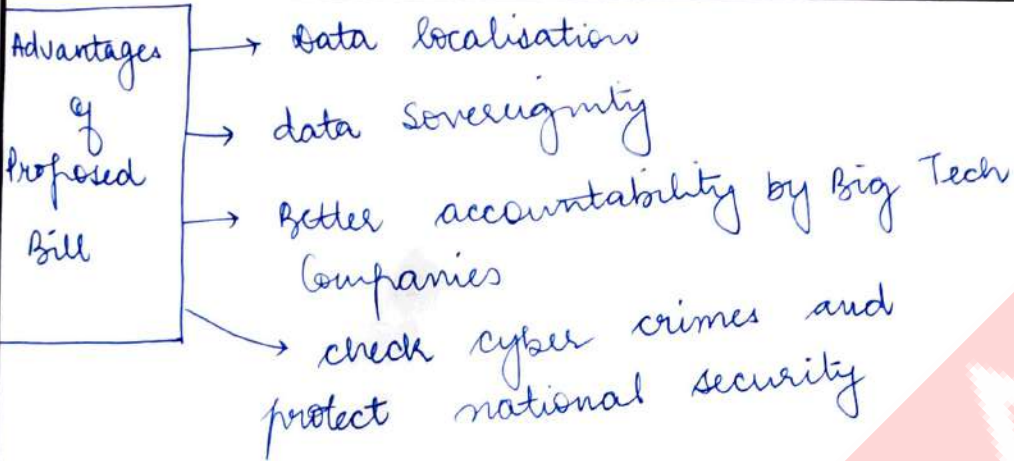 Advantages
of
Proposed
Bill
Data localisation
data sovereignity
Better accountability by Big Tech
Companies
check cyber crimes and
protect national security